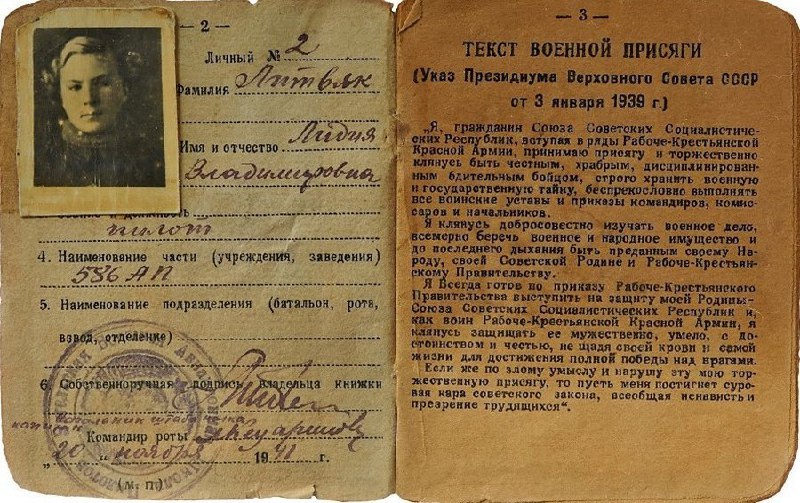 — 2 —
Личный № 2
Фамилия Литвяк
Имя и отчество Лидия
Владимировна
пилот
4. Наименование части (учреждения, заведения)
586 АП
5. Наименование подразделения (батальон, рота,
взвод, отделение)
6. Собственноручная подпись владельца книжки
начальник штаба полка
капитан
Командир роты
„20“ ноября 1941 г.
(м. п.)
— 3 —
ТЕКСТ ВОЕННОЙ ПРИСЯГИ
(Указ Президиума Верховного Совета СССР
от 3 января 1939 г.)
„Я, гражданин Союза Советских Социалистичес-
ких Республик, вступая в ряды Рабоче-Крестьянской
Красной Армии, принимаю присягу и торжественно
клянусь быть честным, храбрым, дисциплинирован-
ным бдительным бойцом, строго хранить военную
и государственную тайну, беспрекословно выполнять
все воинские уставы и приказы командиров, комис-
саров и начальников.
Я клянусь добросовестно изучать военное дело,
всемерно беречь военное и народное имущество и
до последнего дыхания быть преданным своему На-
роду, своей Советской Родине и Рабоче-Крестьян-
скому Правительству.
Я Всегда готов по приказу Рабоче-Крестьянского
Правительства выступить на защиту моей Родины-
Союза Советских Социалистических Республик и,
как воин Рабоче-Крестьянской Красной Армии, я
клянусь защищать ее мужественно, умело, с до-
стоинством и честью, не щадя своей крови и самой
жизни для достижения полной победы над врагами.
Если же по злому умыслу я нарушу эту мою тор-
жественную присягу, то пусть меня постигнет суро-
вая кара советского закона, всеобщая ненависть и
презрение трудящихся“.